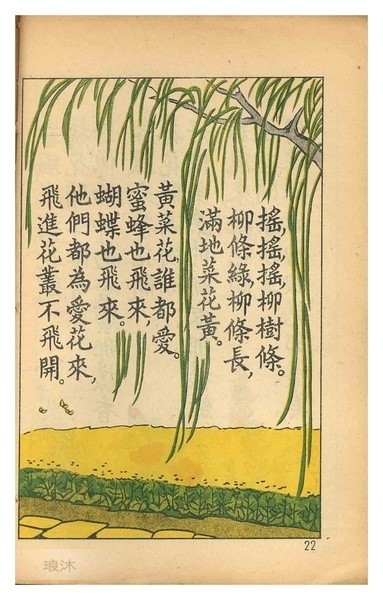 搖,搖,搖,柳樹條。
柳條綠,柳條長,
滿地菜花黃。
黃菜花,誰都愛。
蜜蜂也飛來,
蝴蝶也飛來。
他們都為愛花來,
飛進花叢不飛開。
22
琅沐